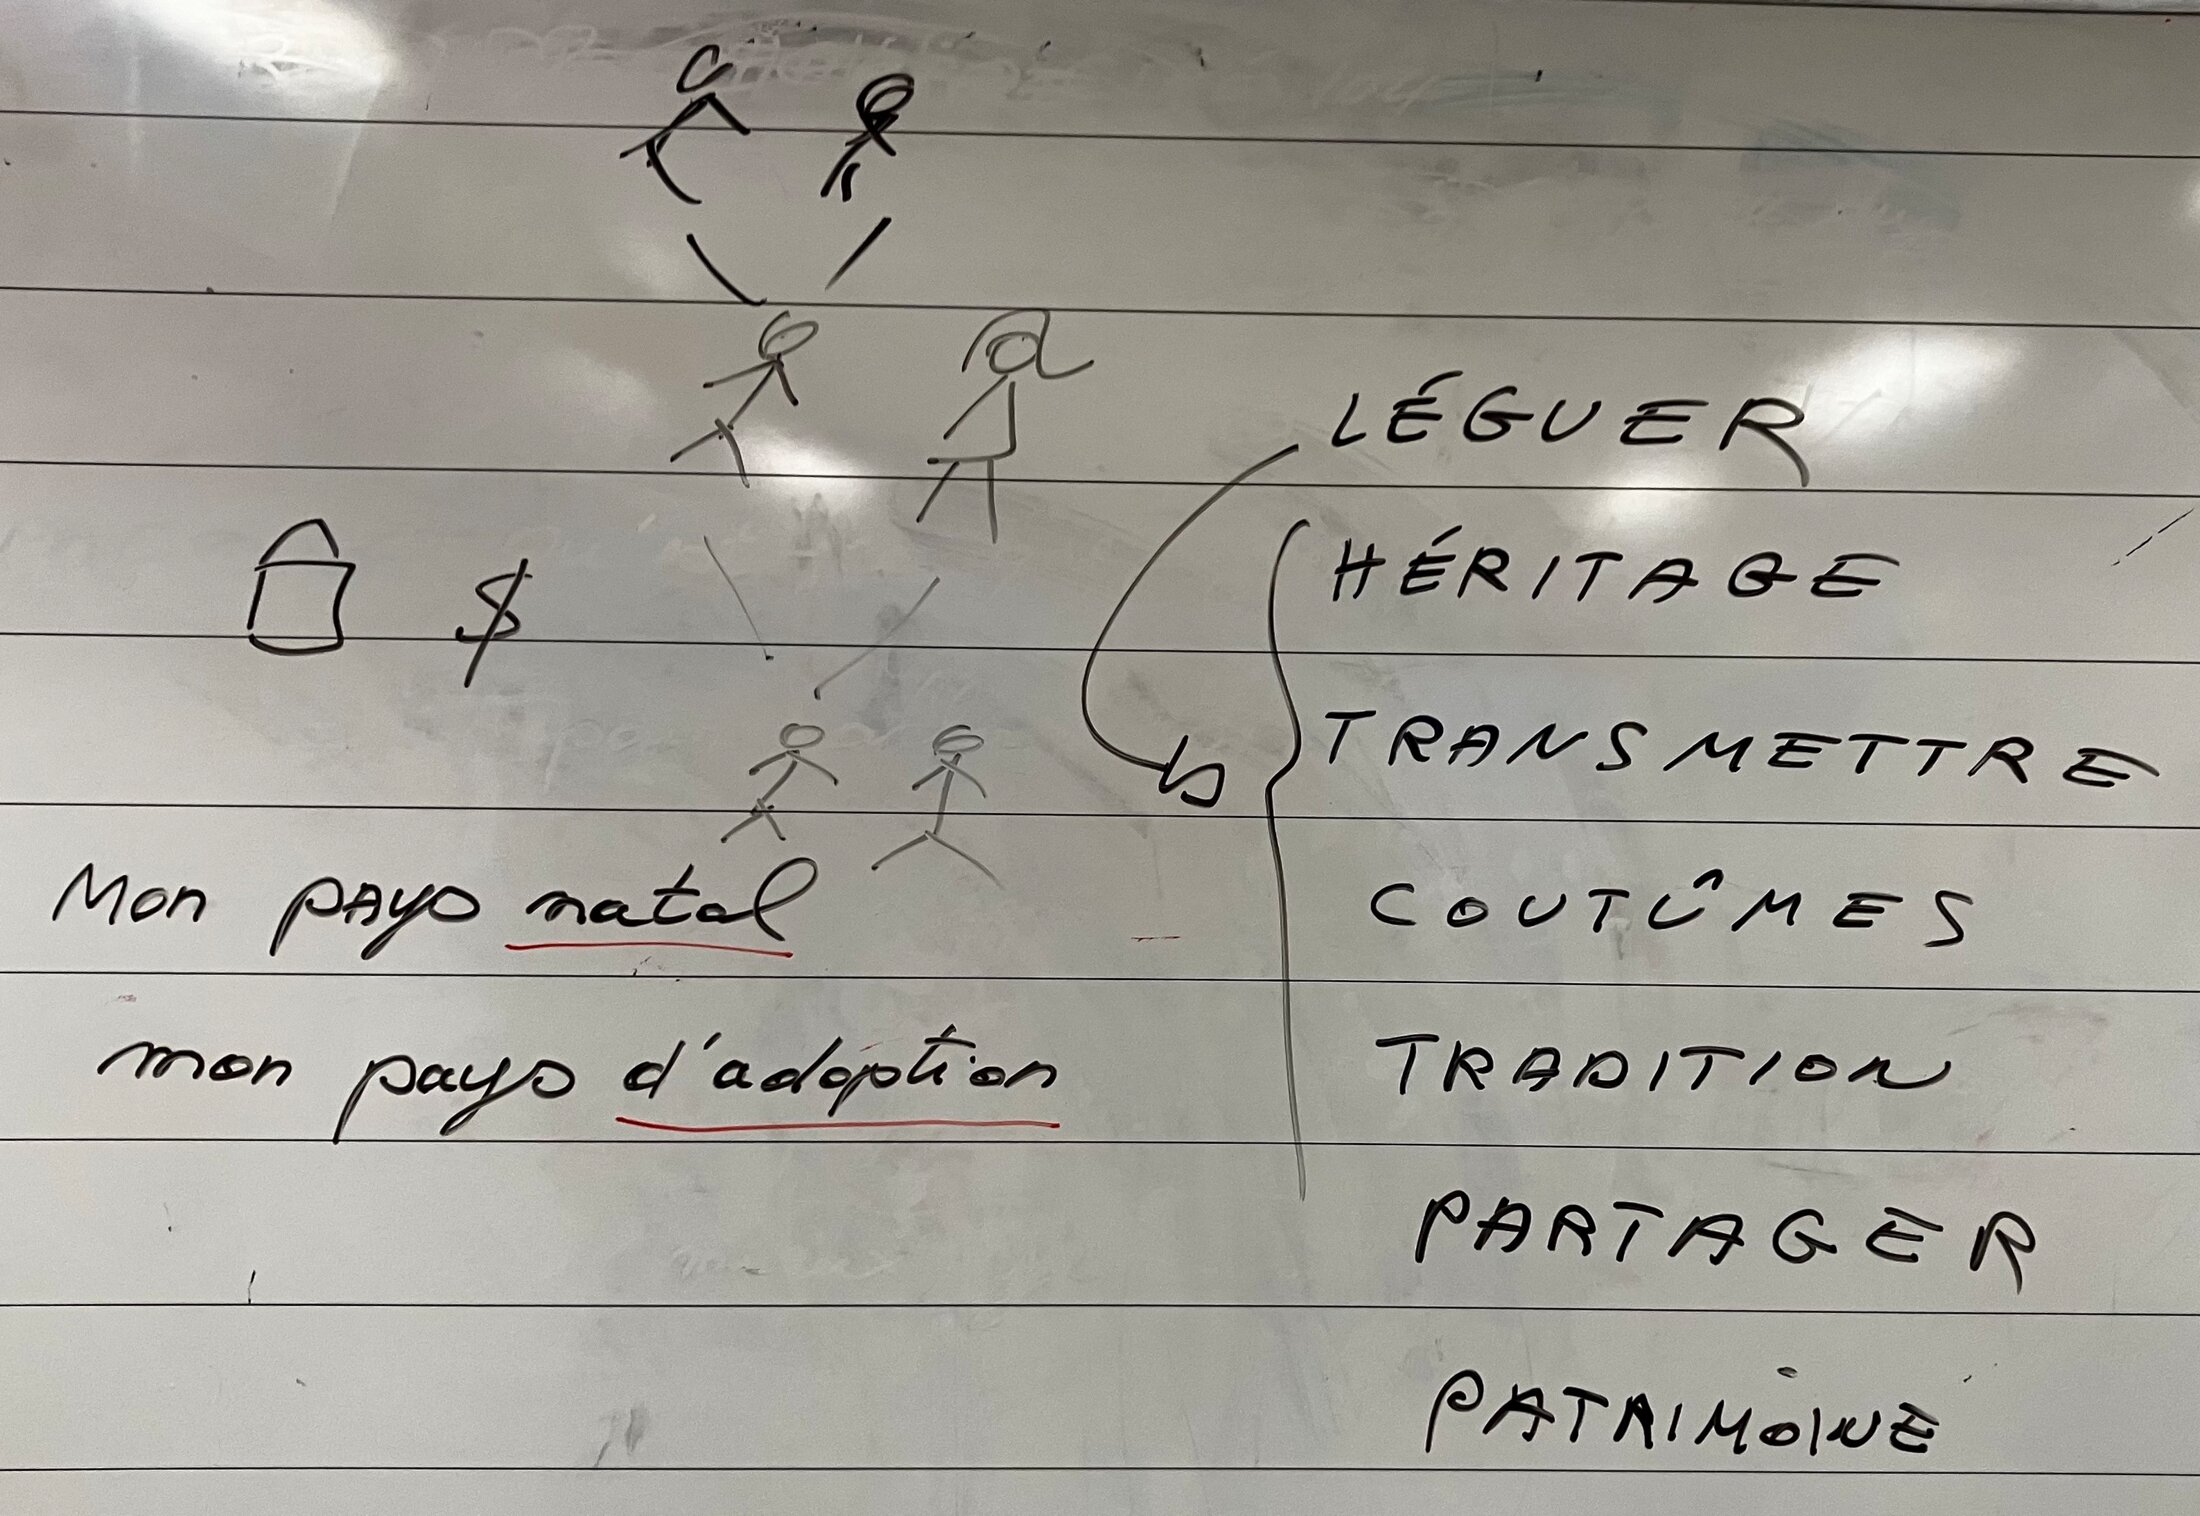 LÉGUER
HÉRITAGE
$
TRANSMETTRE
Mon pays natal
COUTÛMES
mon pays d'adoption
TRADITION
PARTAGER
PATRIMOINE